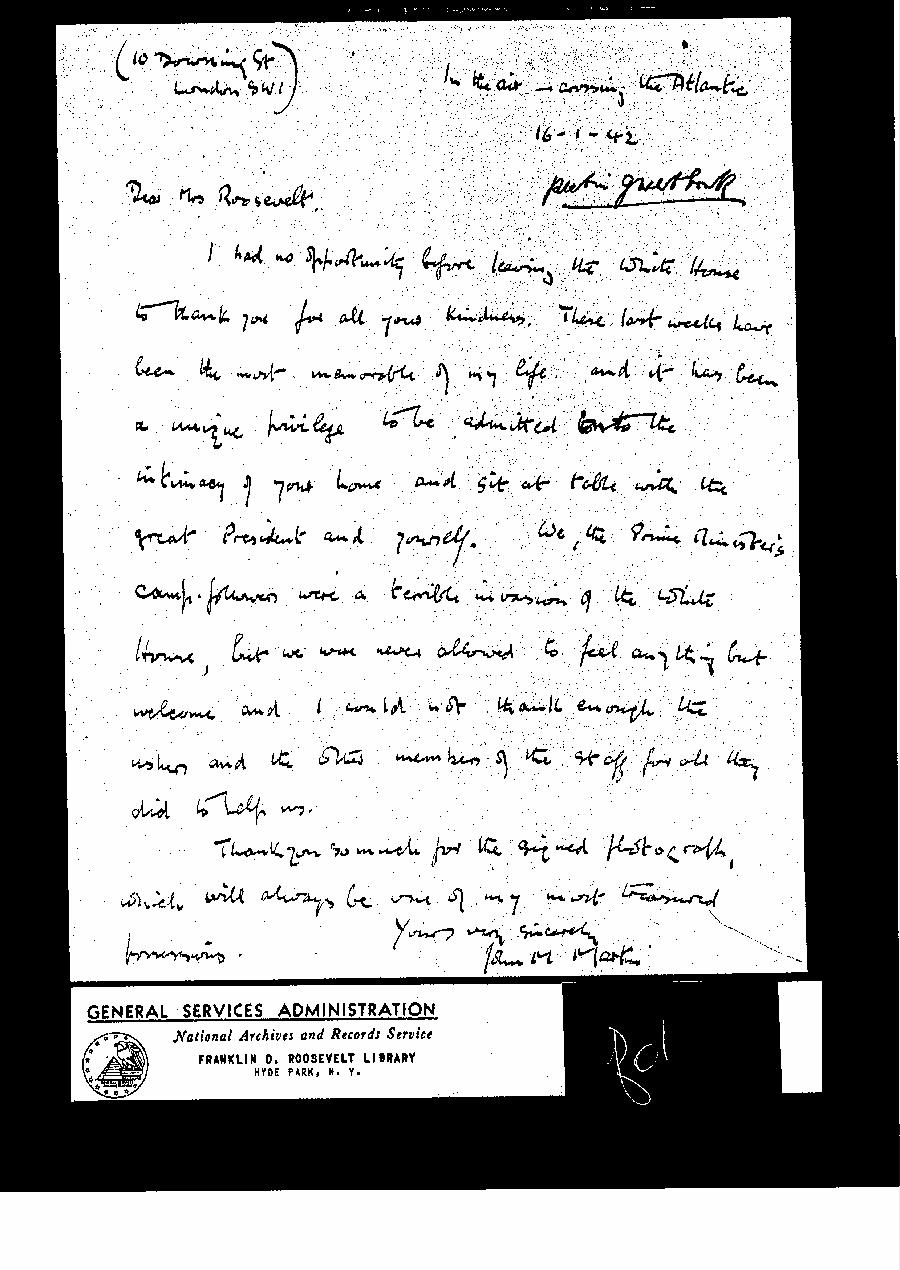 (10 Downing St
London SW1)
In the air – crossing the Atlantic
16-1-42
put in guest book
Dear Mrs Roosevelt,
I had no opportunity before leaving the White House
to thank you for all your kindness. These last weeks have
been the most memorable of my life and it has been
a unique privilege to be admitted to the
intimacy of your home and sit at table with the
great President and yourself. We, the Prime Minister's
camp-followers were a terrible invasion of the White
House, but we were never allowed to feel anything but
welcome and I could not thank enough the
ushers and the other members of the staff for all they
did to help us.
Thank you so much for the signed photograph,
which will always be one of my most treasured
possessions.
Yours very sincerely
John M Martin
GENERAL SERVICES ADMINISTRATION
National Archives and Records Service
FRANKLIN D. ROOSEVELT LIBRARY
HYDE PARK, N. Y.